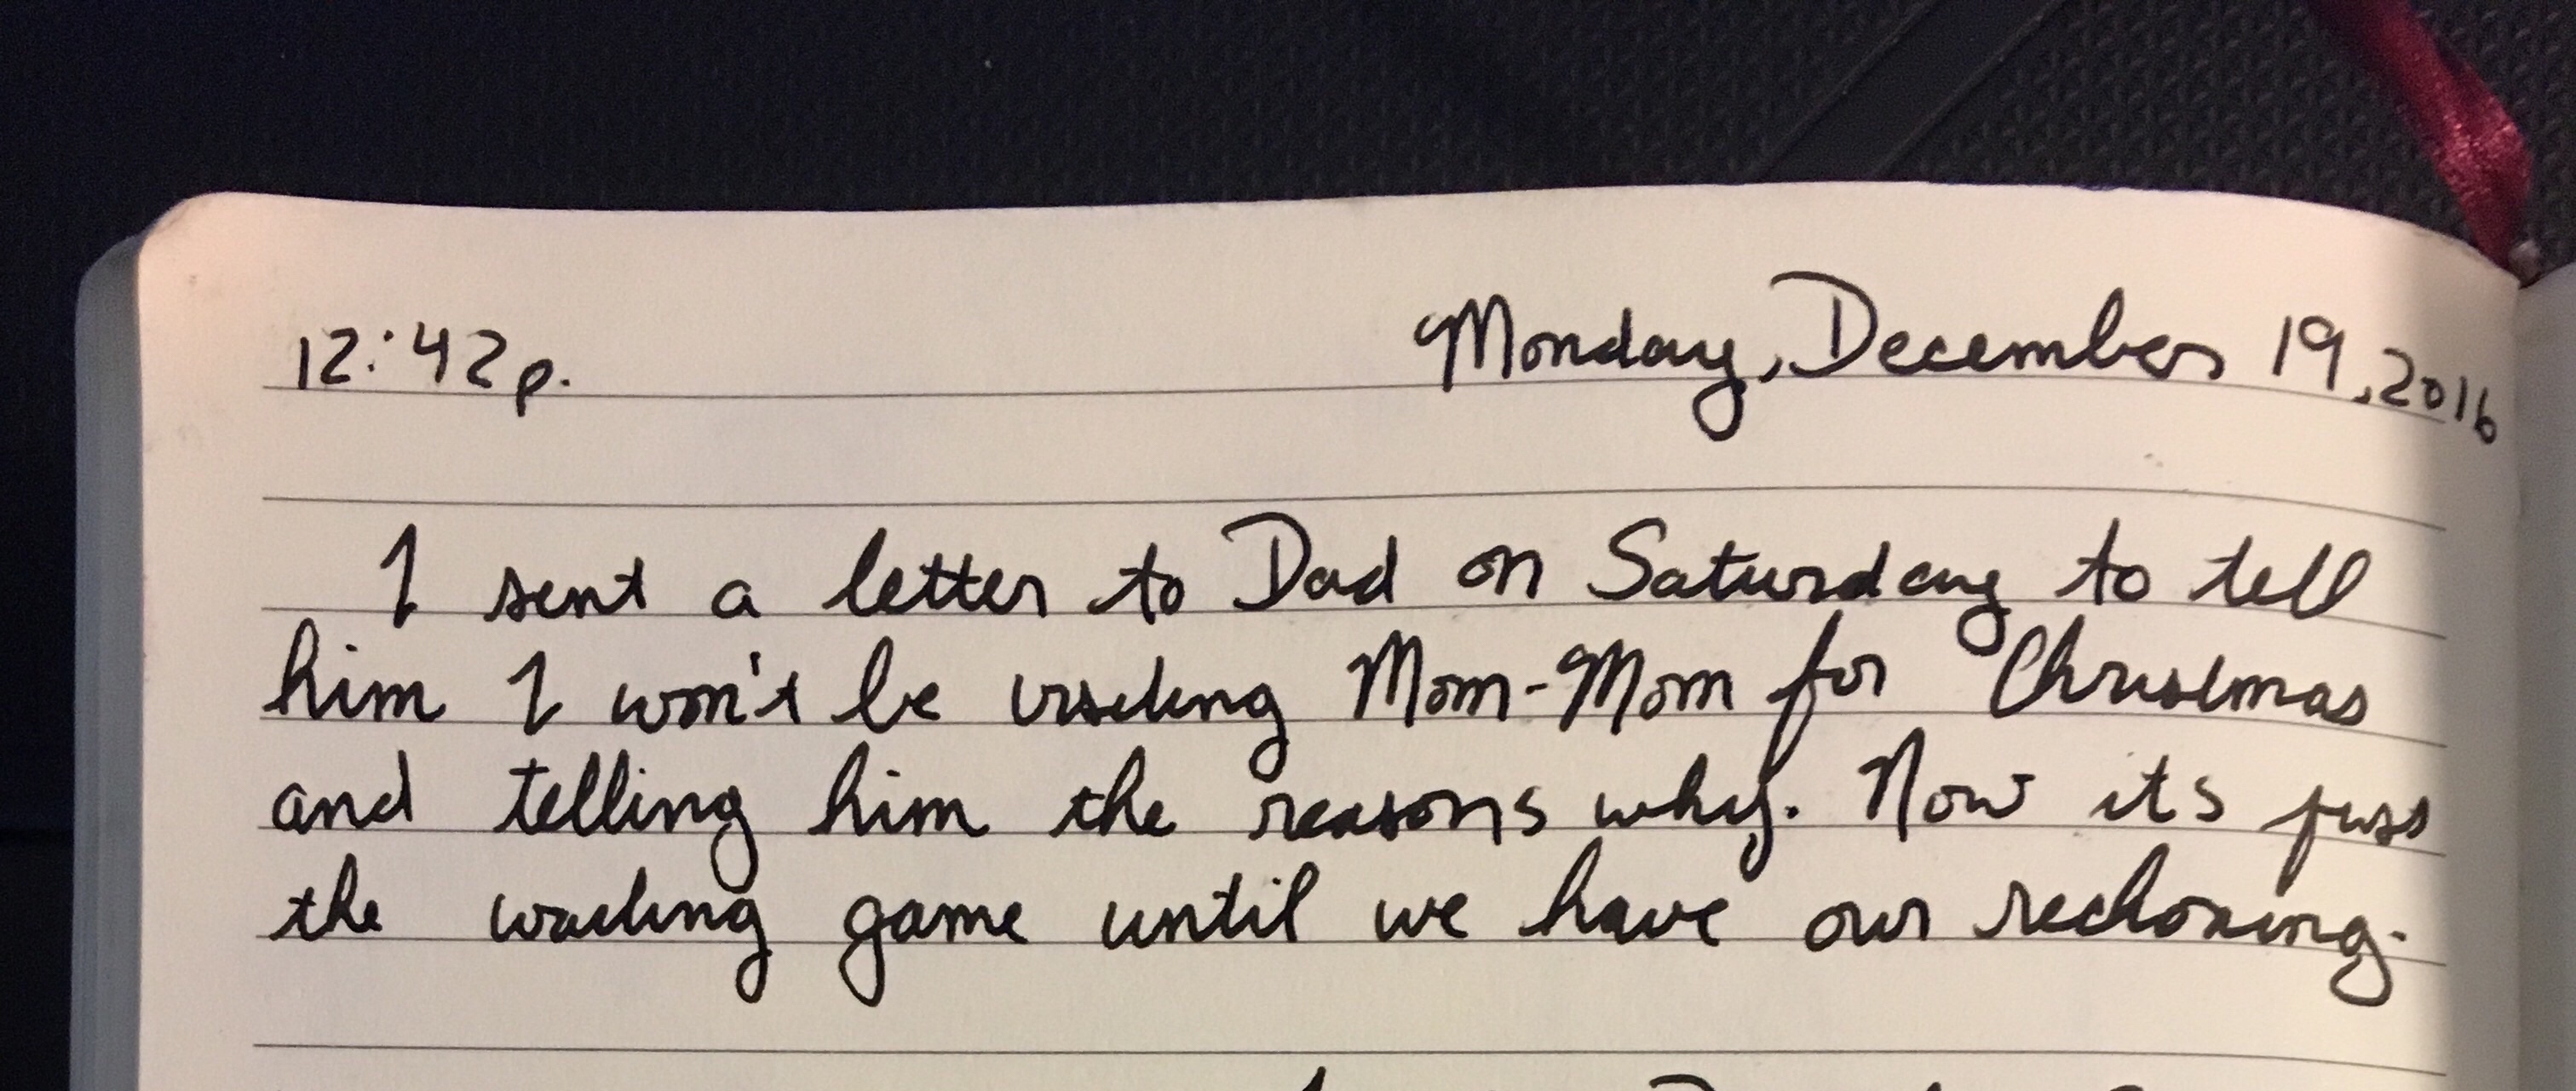 12:42p. Monday, December 19, 2016
I sent a letter to Dad on Saturday to tell
him I won't be visiting Mom-Mom for Christmas
and telling him the reasons why. Now its just
the waiting game until we have our reckoning.